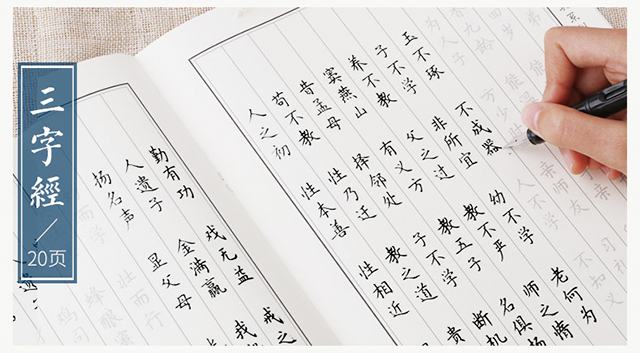 三字經
20页
扬名声 显父母
人遗子 金满赢 我
勤有功 戏无益 戒之
人之初 性本善 性相近
苟不教 性乃迁 教之道 贵
昔孟母 择邻处 子不学 断机
窦燕山 有义方 教五子 名俱扬
养不教 父之过 教不严 师之惰
子不学 非所宜 幼不学 老何为
玉不琢 不成器